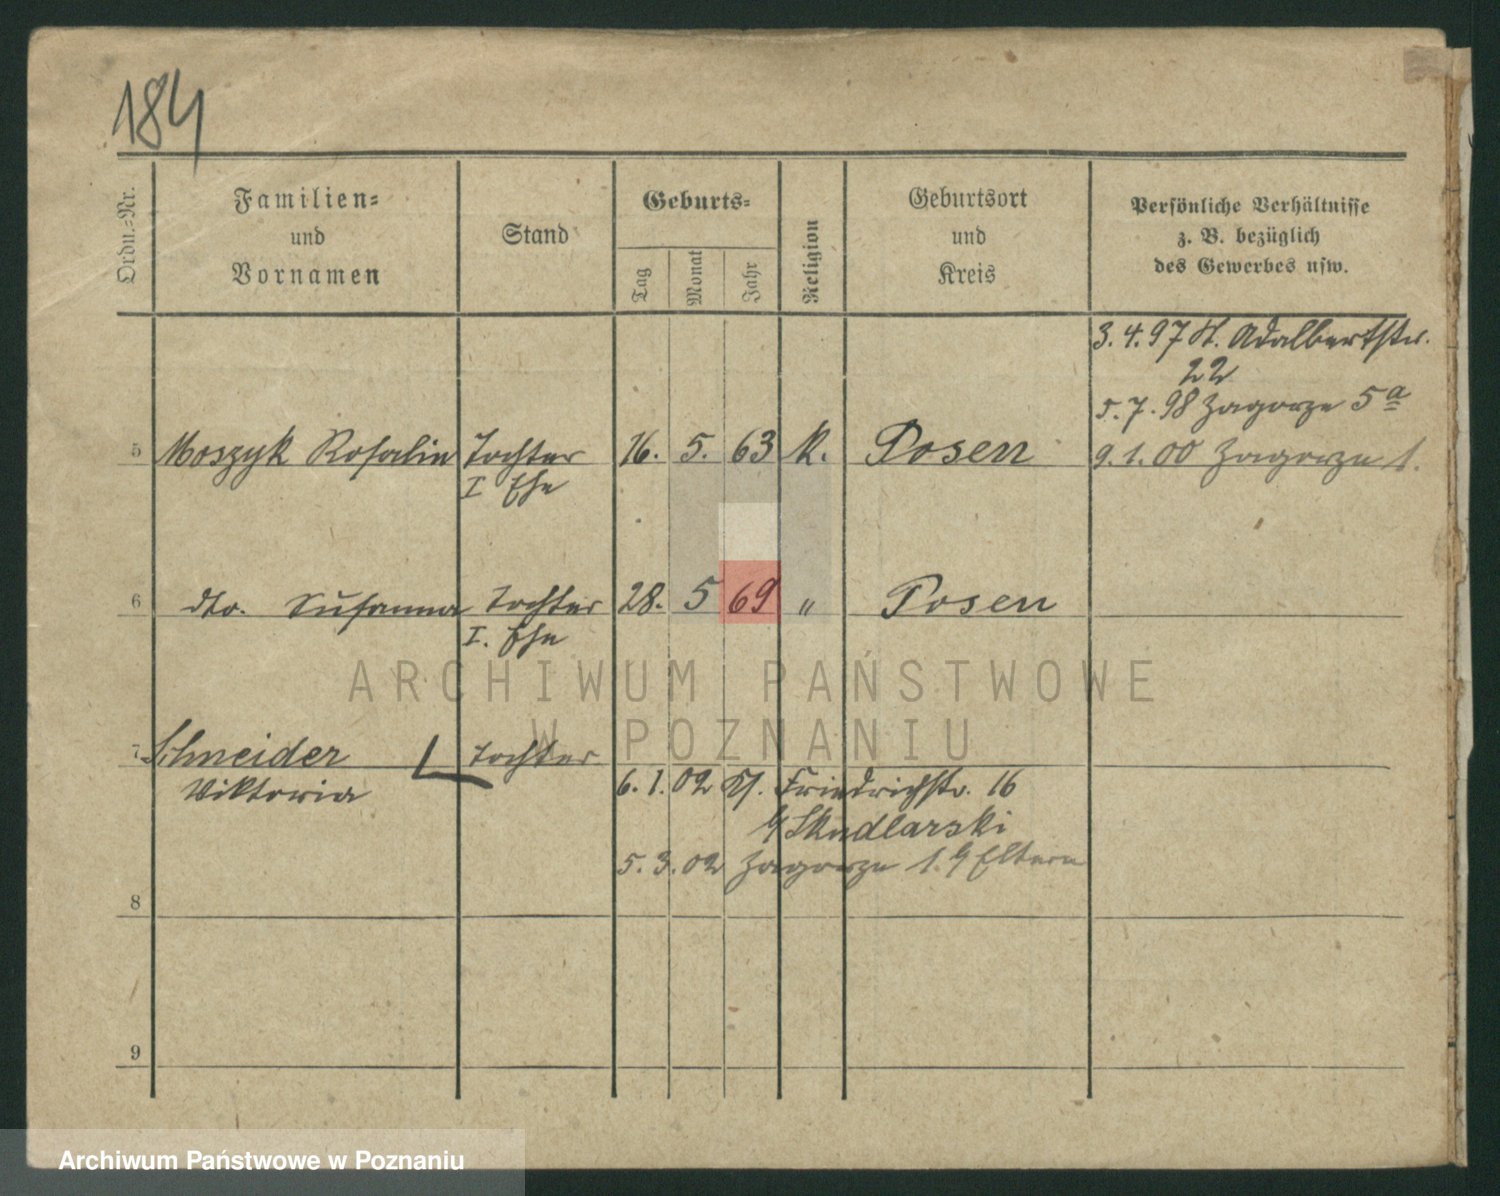 184
Ordn.-Nr.
Familien-
und
Vornamen
Stand
Geburts-
Tag
Monat
Jahr
Religion
Geburtsort
und
Kreis
Persönliche Verhältnisse
z. B. bezüglich
des Gewerbes usw.
3.4.97 St. Adalbertstr.
22
5.7.98 Zagorze 5a
5 Moszyk Rosalie Tochter 16. 5. 63 K. Posen 9.1.00 Zagorze 1.
I Ehe
6 dto. Susanna Tochter 28. 5 69 " Posen
I. Ehe
ARCHIWUM PAŃSTWOWE
W POZNANIU
7 Schneider Tochter
Viktoria 6.1.02 Friedrichstr. 16
Skudlarski
5.3.02 Zagorze 1. Eltern
8
9
Archiwum Państwowe w Poznaniu